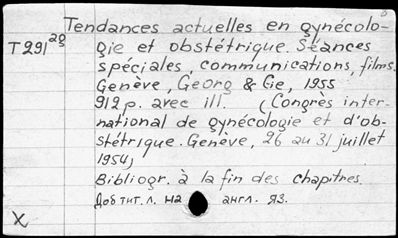 Tendances actuelles en gynécolo-
T291²⁹ gie et obstétrique. Séances
spéciales, communications, films.
Genève, Georg & Cie, 1955
912 p. avec ill. (Congrès inter-
national de gynécologie et d'ob-
stétrique. Genève, 26 au 31 juillet
1954)
Bibliogr. à la fin des chapitres.
Доб тит. л. на англ. яз.
X